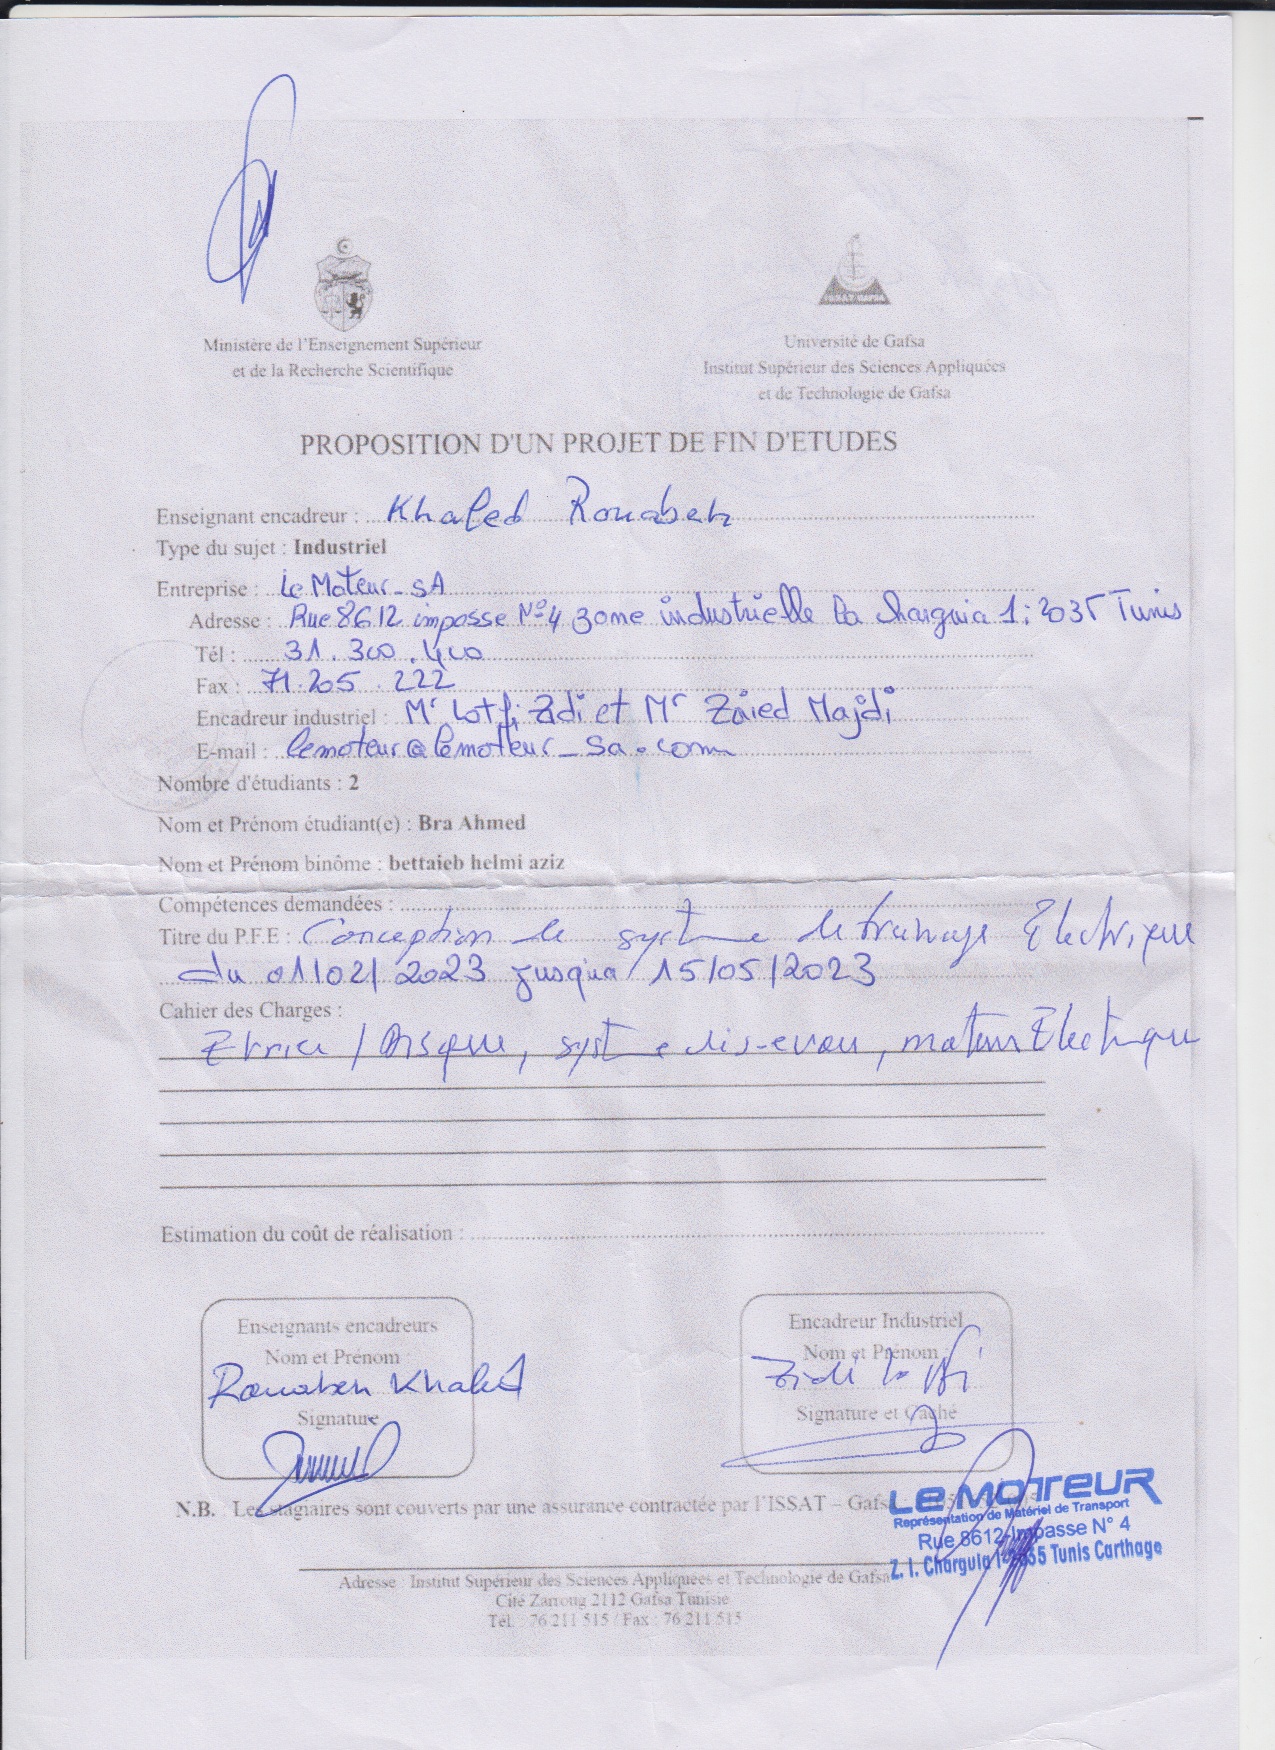 Ministère de l'Enseignement Supérieur
et de la Recherche Scientifique
ISSAT GAFSA
Université de Gafsa
Institut Supérieur des Sciences Appliquées
et de Technologie de Gafsa
PROPOSITION D'UN PROJET DE FIN D'ETUDES
Enseignant encadreur : Khaled Rouabeh
Type du sujet : Industriel
Entreprise : Le Moteur_SA
Adresse : Rue 8612 impasse N°4 zone industrielle la charguia 1: 2035 Tunis
Tél : 31.300.400
Fax : 71.205.222
Encadreur industriel : Mr Lotfi Zidi et Mr Zaied Majdi
E-mail : lemoteur@lemoteur_sa.com
Nombre d'étudiants : 2
Nom et Prénom étudiant(e) : Bra Ahmed
Nom et Prénom binôme : bettaieb helmi aziz
Compétences demandées :
Titre du P.F.E : Conception de système de freinage Electrique
du 01/02/2023 jusqu'a 15/05/2023
Cahier des Charges :
Etrier / Disque, système vis-ecrou, moteur Electrique
Estimation du coût de réalisation :
Enseignants encadreurs
Nom et Prénom
Rouabeh Khaled
Signature
Encadreur Industriel
Nom et Prénom
Zidi Lotfi
Signature et Caché
N.B. : Les stagiaires sont couverts par une assurance contractée par l'ISSAT – Gafsa
LE MOTEUR
Représentation de Matériel de Transport
Rue 8612-Impasse N° 4
Z. I. Charguia I-2035 Tunis Carthage
Adresse : Institut Supérieur des Sciences Appliquées et Technologie de Gafsa
Cité Zarroug 2112 Gafsa Tunisie
Tél. : 76 211 515 / Fax : 76 211 515